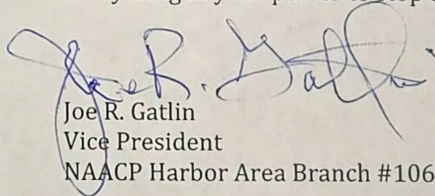 Joe R. Gatlin
Joe R. Gatlin
Vice President
NAACP Harbor Area Branch #106